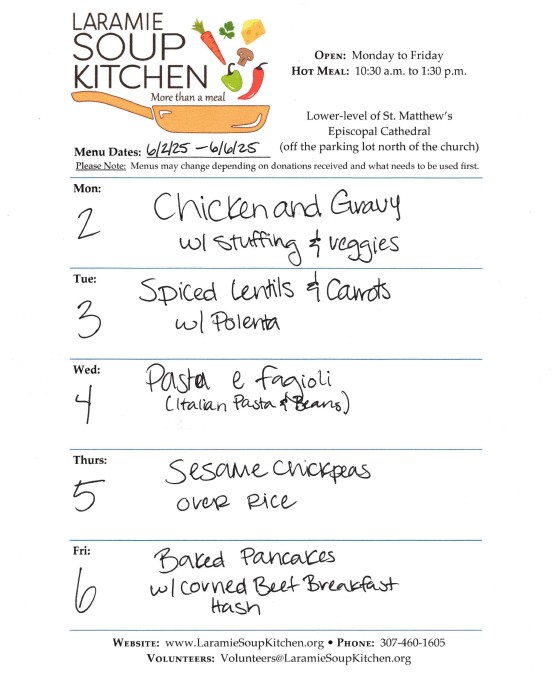 LARAMIE
SOUP
KITCHEN
More than a meal
OPEN: Monday to Friday
HOT MEAL: 10:30 a.m. to 1:30 p.m.
Lower-level of St. Matthew's
Episcopal Cathedral
(off the parking lot north of the church)
Menu Dates: 6/2/25 – 6/6/25
Please Note: Menus may change depending on donations received and what needs to be used first.
Mon:
2
Chicken and Gravy
w/ Stuffing & veggies
Tue:
3
Spiced Lentils & Carrots
w/ Polenta
Wed:
4
Pasta e fagioli
(Italian Pasta & Beans)
Thurs:
5
Sesame Chickpeas
over Rice
Fri:
6
Baked Pancakes
w/ Corned Beef Breakfast
Hash
WEBSITE: www.LaramieSoupKitchen.org • PHONE: 307-460-1605
VOLUNTEERS: Volunteers@LaramieSoupKitchen.org